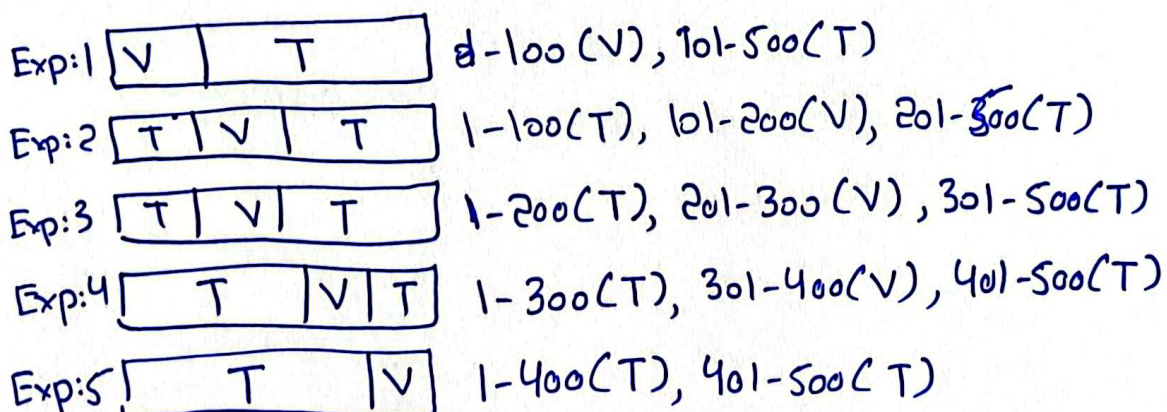 Exp:1 V T 1-100 (V), 101-500(T)
Exp:2 T V T 1-100(T), 101-200(V), 201-500(T)
Exp:3 T V T 1-200(T), 201-300 (V), 301-500(T)
Exp:4 T V T 1-300(T), 301-400(V), 401-500(T)
Exp:5 T V 1-400(T), 401-500( T)